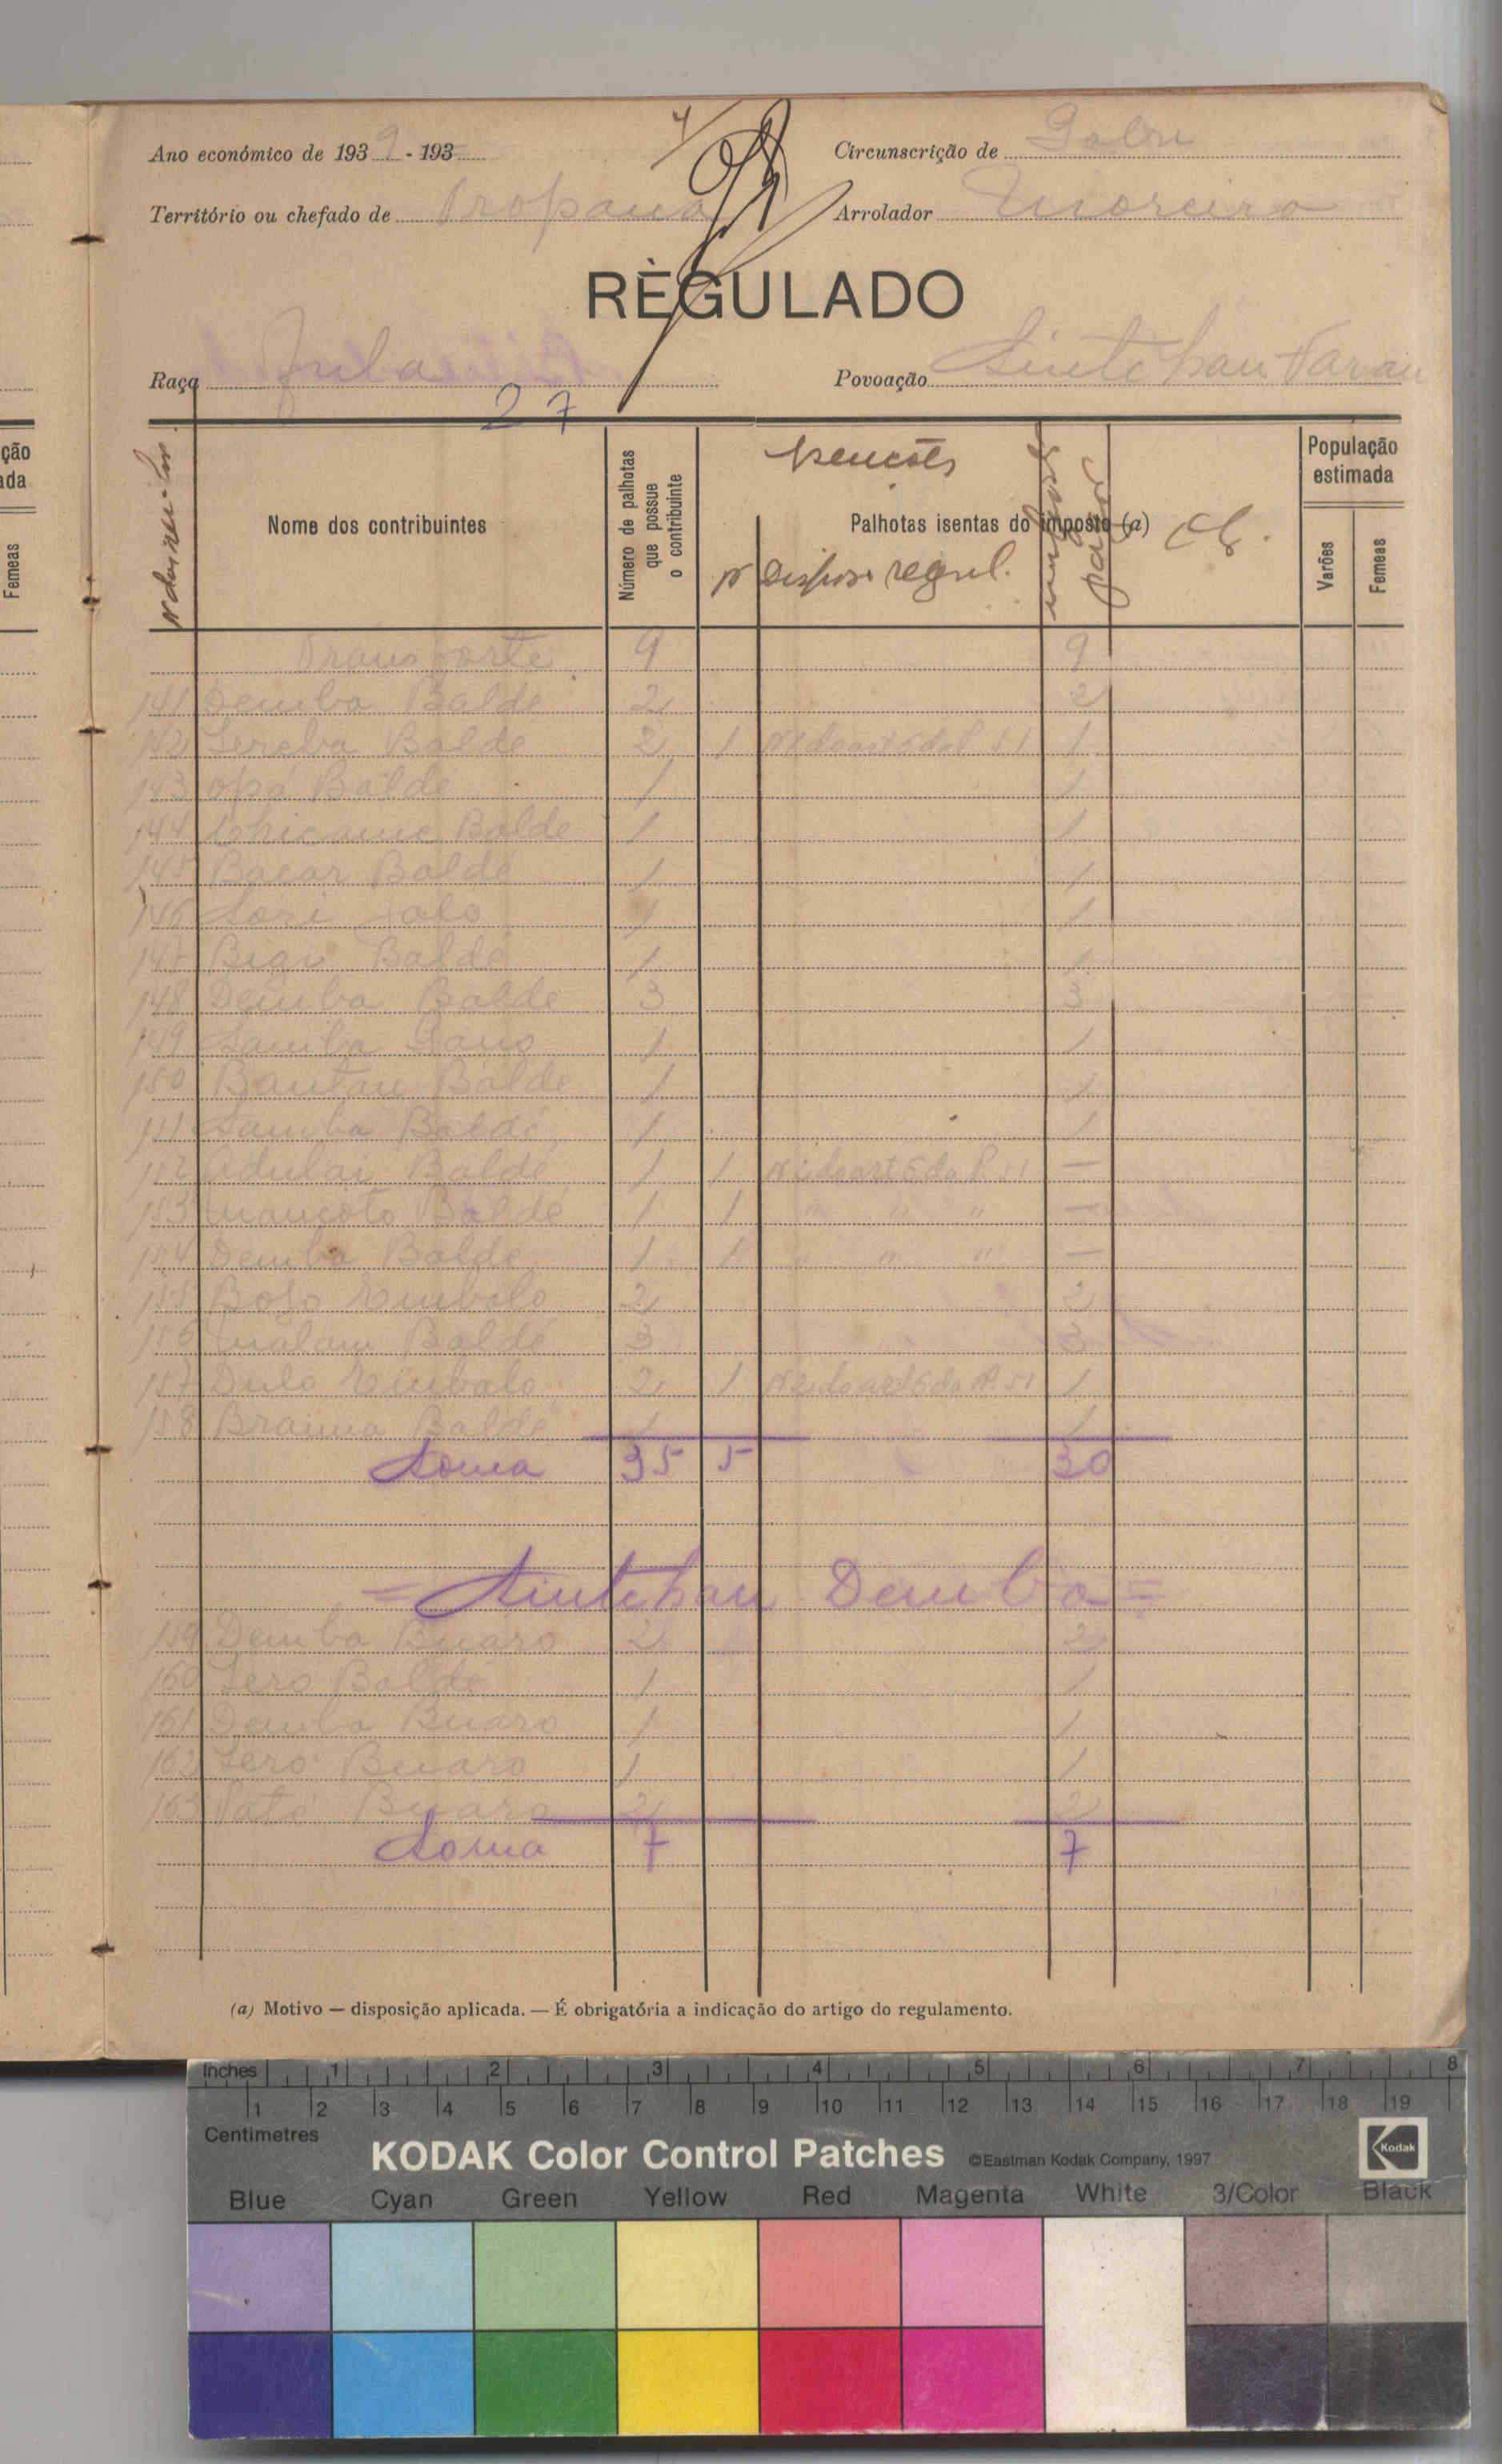 Ano económico de 1939 - 193
Circunscrição de Gabu
Território ou chefado de Propana
Arrolador Moreira
RÈGULADO
Raça Fula
Povoação Sintchan Faran
27
ção
ada
Femeas
Nome dos contribuintes
Número de palhotas que possue o contribuinte
Isenções
Palhotas isentas do imposto (a)
Nº Disposi regul.
a pagar
População estimada
Varões
Femeas
Transporte 9 9
141 Demba Baldé 2 2
142 Sereba Baldé 2 1 Nº 2 do art 6 do R. 51 1
143 opá Baldé 1 1
144 Baldé 1 1
145 Bacar Baldé 1 1
146 Sori Jaló 1 1
147 Bigi Baldé 1 1
148 Demba Baldé 3 3
149 Samba Sano 1 1
150 Bantau Baldé 1 1
151 Samba Baldé 1 1
152 Adulai Baldé 1 1 Nº 2 do art 6 do R. 51 —
153 Mancoto Baldé 1 1 " " " —
154 Demba Baldé 1 1 " " " —
155 Bojo Embaló 2 2
156 Malam Baldé 3 3
157 Dulo Embaló 2 1 Nº 2 do art 6 do R. 51 1
158 Braima Baldé 1 1
Soma 35 5 30
= Sintchan Demba =
159 Demba Buaro 2 2
160 Sero Baldé 1 1
161 Demba Buaro 1 1
162 Sero Buaro 1 1
163 Paté Buaro 2 2
Soma 7 7
(a) Motivo — disposição aplicada. — É obrigatória a indicação do artigo do regulamento.
Inches 1 2 3 4 5 6 7 8
1 2 3 4 5 6 7 8 9 10 11 12 13 14 15 16 17 18 19
Centimetres
KODAK Color Control Patches ©Eastman Kodak Company, 1997 Kodak
Blue Cyan Green Yellow Red Magenta White 3/Color Black